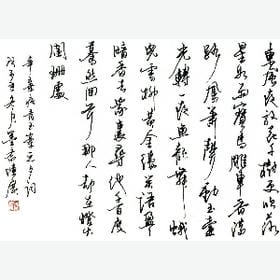 東風夜放花千樹更吹落
星如雨寶馬雕車香滿
路鳳簫聲動玉壺
光轉一夜魚龍舞蛾
兒雪柳黃金縷笑語盈
暗香去衆裏尋他千百度
驀然回首那人卻在燈火
闌珊處
辛棄疾青玉案元夕詞
戊子年冬月